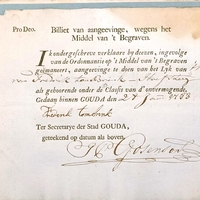 Pro Deo. Billiet van aangeevinge, wegens het
Middel van 't Begraven.
Ik ondergeschreve verklaare by deezen, ingevolge
van de Ordonnantie op 't Middel van 't Begraven
geëmaneert, aangeevinge te doen van het Lyk van
als gehoorende onder de Classis van d' onvermogende.
Gedaan binnen GOUDA, den 24 Jan
Frederik
Ter Secretarye der Stad GOUDA,
geteekend op datum als boven.